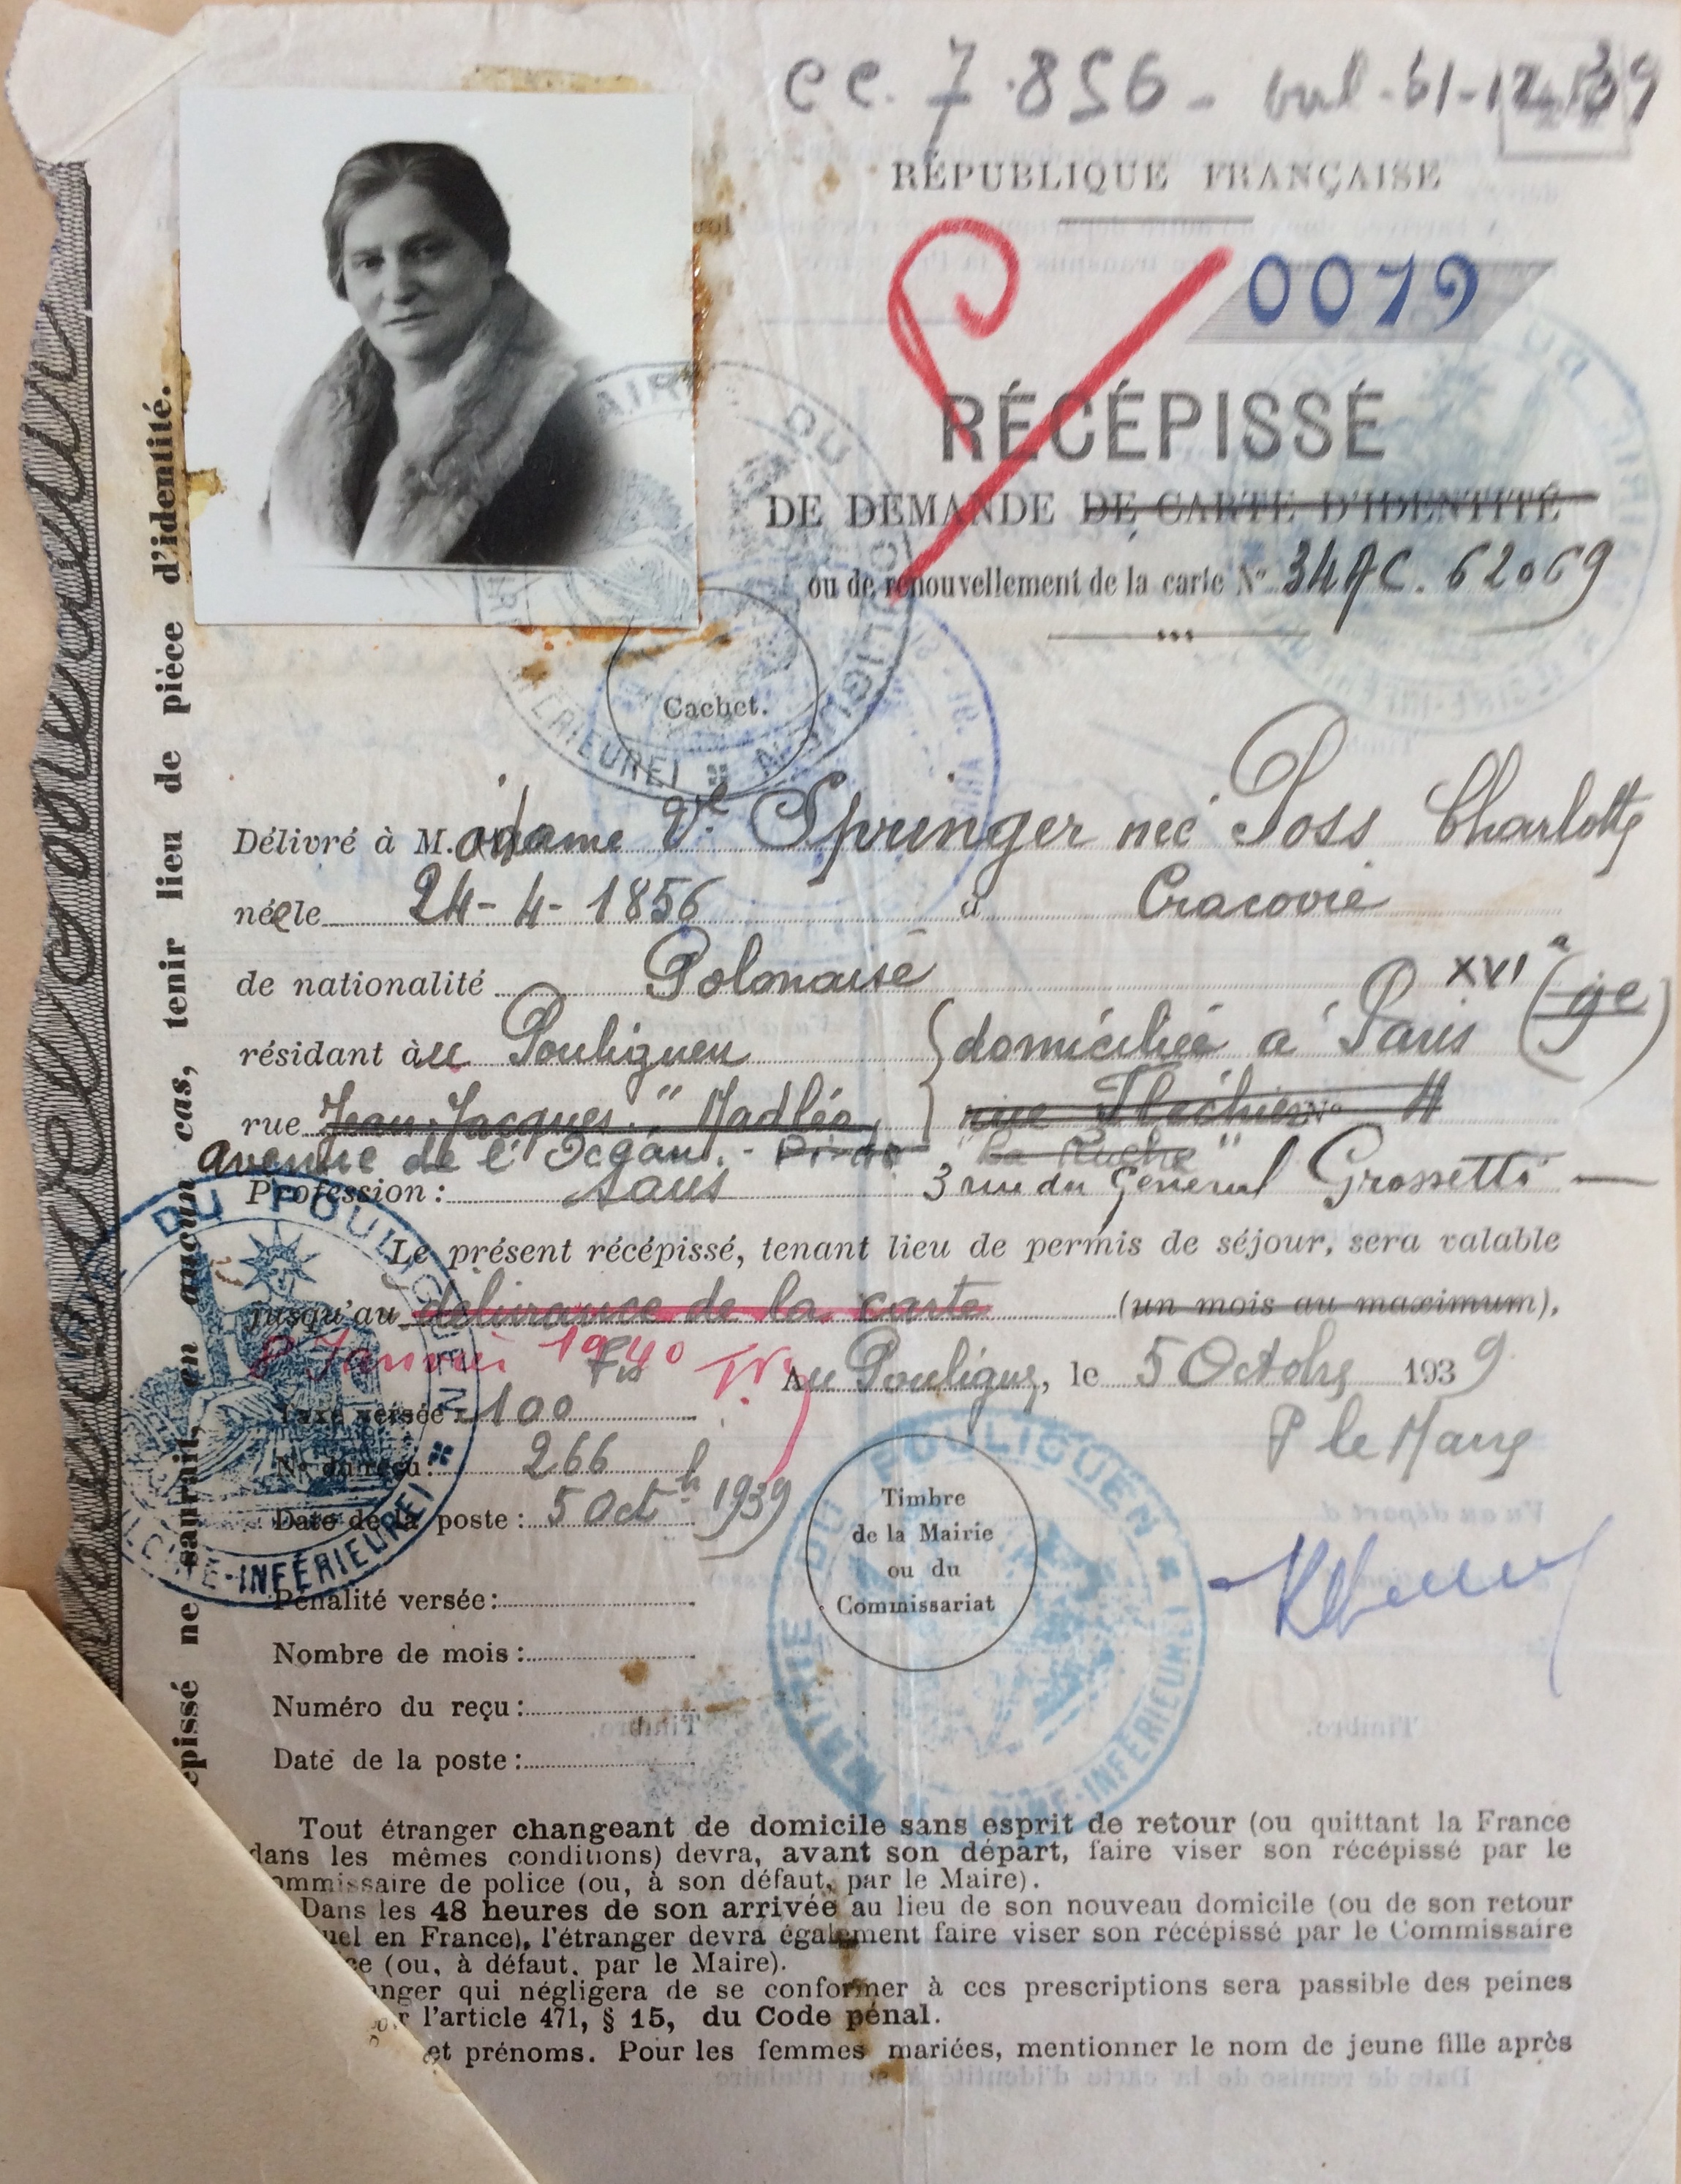 cc. 7.856 - val - 31-12-39
RÉPUBLIQUE FRANÇAISE
0079
RÉCÉPISSÉ
DE DEMANDE DE CARTE D'IDENTITÉ
ou de renouvellement de la carte N° 34AC. 62069
Cachet.
MAIRIE DU POULIGUEN (LOIRE-INFÉRIEURE)
Délivré à M.adame Ve Springer née Poss Charlotte
née le 24-4-1856 à Cracovie
de nationalité Polonaise
XVI
résidant au Pouliguen domiciliée à Paris
rue Jean-Jacques "Madléo" rue Fléchier N° 4
avenue de l'Océan. "La Ruche"
3 rue du Général Grossetti
Profession : sans
Le présent récépissé, tenant lieu de permis de séjour, sera valable
jusqu'au délivrance de la carte (un mois au maximum),
8 Janvier 1940
Au Pouliguen, le 5 Octobre 1939
Taxe versée : 100 Frs
P le Maire
N° du reçu : 266
Date de la poste : 5 Oct 1939
Timbre
de la Mairie
ou du
Commissariat
MAIRIE DU POULIGUEN (LOIRE-INFÉRIEURE)
Pénalité versée :
Nombre de mois :
Numéro du reçu :
Date de la poste :
DU POULIGUEN (LOIRE-INFÉRIEURE)
Tout étranger changeant de domicile sans esprit de retour (ou quittant la France
dans les mêmes conditions) devra, avant son départ, faire viser son récépissé par le
ommissaire de police (ou, à son défaut, par le Maire).
Dans les 48 heures de son arrivée au lieu de son nouveau domicile (ou de son retour
uel en France), l'étranger devra également faire viser son récépissé par le Commissaire
ce (ou, à défaut, par le Maire).
anger qui négligera de se conformer à ces prescriptions sera passible des peines
r l'article 471, § 15, du Code pénal.
et prénoms. Pour les femmes mariées, mentionner le nom de jeune fille après
épissé ne saurait, en aucun cas, tenir lieu de pièce d'identité.